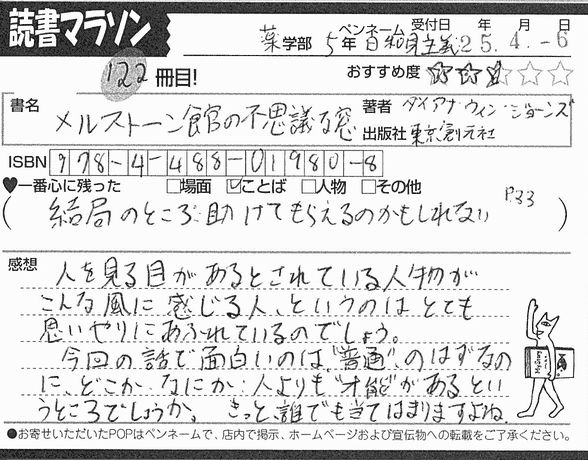 読書マラソン
薬学部 5年 ペンネーム 日和見主義 受付日 25年4月-6日
122冊目!
おすすめ度 ★★★☆☆☆
書名 メルストーン館の不思議な窓
著者 ダイアナ・ウィン・ジョーンズ
出版社 東京創元社
ISBN 978-4-488-01980-8
♥一番心に残った □場面 ☑ことば □人物 □その他
(結局のところ助けてもらえるのかもしれない P.33)
感想
人を見る目があるとされている人物が
こんな風に感じる人、というのはとても
思いやりにあふれているのでしょう。
今回の話で面白いのは、"普通"のはずなの
に、どこか、なにか、人よりも"才能"があるとい
うところでしょうか。きっと、誰でも当てはまりますよね。
●お寄せいただいたPOPはペンネームで、店内で掲示、ホームページおよび宣伝物への転載をご了承ください。